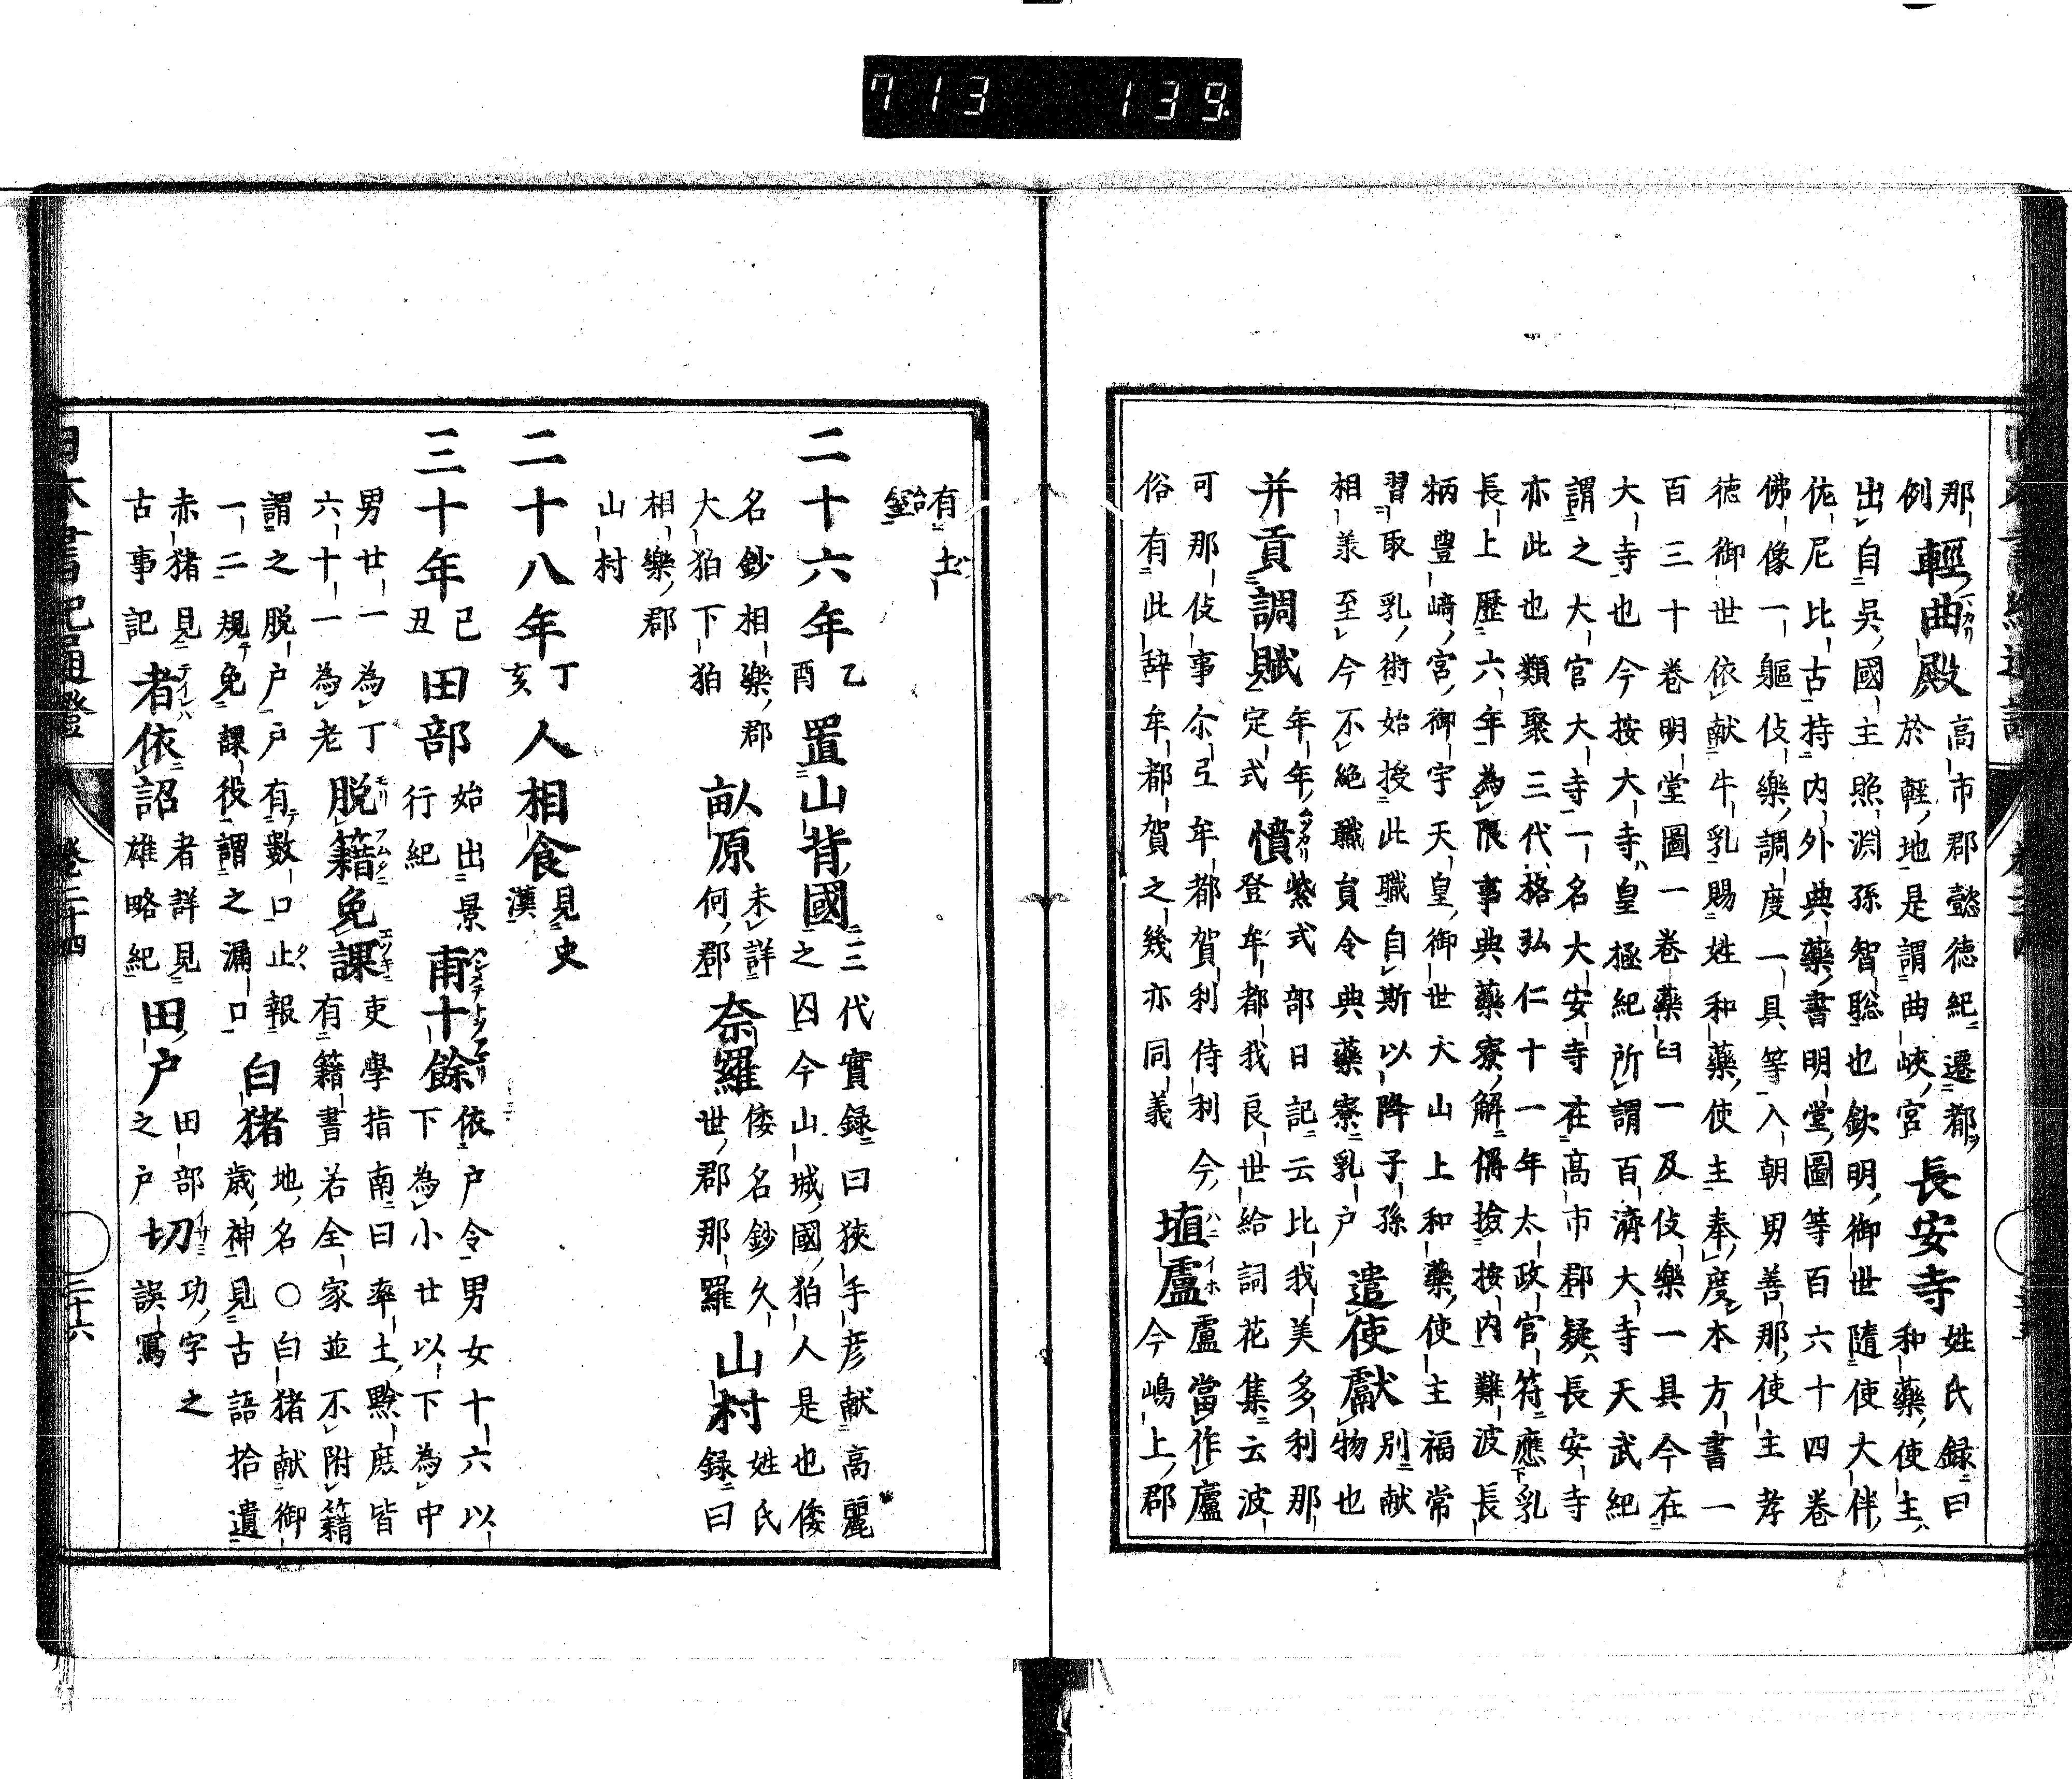 713 139
那例 輕曲殿 高市郡懿徳紀遷都
於輕地是謂曲峽宮 長安寺 姓氏録曰
和藥使主
出自吳國主照淵孫智聡也欽明御世隨使大伴
佐尼比古持内外典藥書明堂圖等百六十四卷
佛像一軀伎樂調度一具等入朝男善那使主孝
徳御世依献牛乳賜姓和藥使主奉度本方書一
百三十卷明堂圖一卷藥臼一及伎樂一具今在
大寺也今按大寺皇極紀所謂百濟大寺天武紀
謂之大官大寺一名大安寺在高市郡疑長安寺
亦此也類聚三代格弘仁十一年太政官符應乳
長上歷六年為限事典藥寮解偁撿按内難波長
柄豊﨑宮御宇天皇御世大山上和藥使主福常
習取乳術始授此職自斯以降子孫
相羕至今不絶職貟令典藥寮乳戸 遣使獻 別献
物也
并貢調賦 年年
定式 憤 紫式部日記云比我美多利那
登牟都我良世給詞花集云波
可那伎事尓弖牟都賀利侍利今
俗有此辞牟都賀之幾亦同義 埴盧 盧當作廬
今嶋上郡
有土
始
釜
二十六年 乙酉 置山背國 三代實録曰狹手彦献高麗
之囚今山城國狛人是也倭
名鈔相樂郡
大狛下狛 畝原 未詳
何郡 奈羅 倭名鈔久
世郡那羅 山村 姓氏
録曰
相樂郡
山村
二十八年 丁亥 人相食 見史
漢
三十年 己丑 田部 始出景
行紀 甫十餘 依戸令男女十六以
下為小廿以下為中
男廿一為丁
六十一為老 脱籍免課 吏學指南曰率土黔庶皆
有籍書若全家並不附籍
謂之脱戸戸有數口止報
一二規免課役謂之漏口 白猪 地名〇白猪献御
歳神見古語拾遺
赤猪見
古事記 者依詔 者詳見
雄略紀 田戸 田部
之戸 切 功字之
誤寫
日本書紀通證 卷二十四 二十六